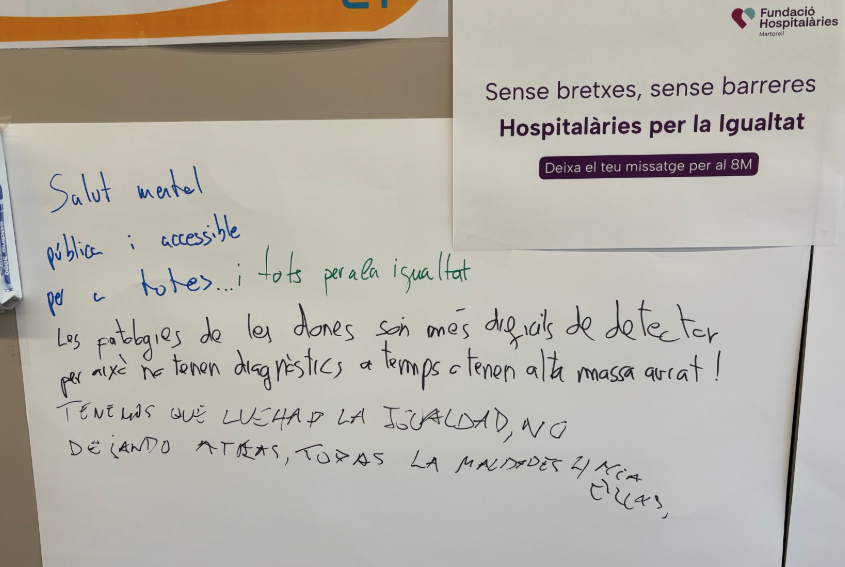 Fundació
Hospitalàries
Martorell
Sense bretxes, sense barreres
Hospitalàries per la Igualtat
Deixa el teu missatge per al 8M
Salut mental
pública i accessible
per a totes...i tots per a la igualtat
Les patologies de les dones són més difícils de detectar
per això no tenen diagnòstics a temps o tenen alta massa aviat!
TENEMOS QUE LUCHAR LA IGUALDAD, NO
DEJANDO ATRAS, TODAS LA MALDADES